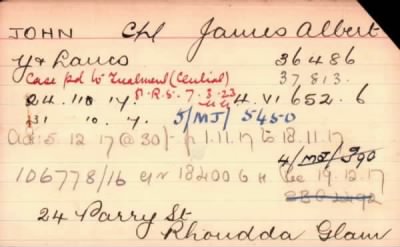 JOHN Cpl James Albert
Y & Lancs 36486
Case pd to Treatment (Central) 37813.
S.R.S. 7.3.23
24.10.17. 4.VI 652.6
31 10.17. 5/MJ/5450
5.12.17 @ 30/- fr 1.11.17 to 18.11.17
4/MJ/790
106778/16 18400 19.12.17
24 Parry St
Rhondda Glam